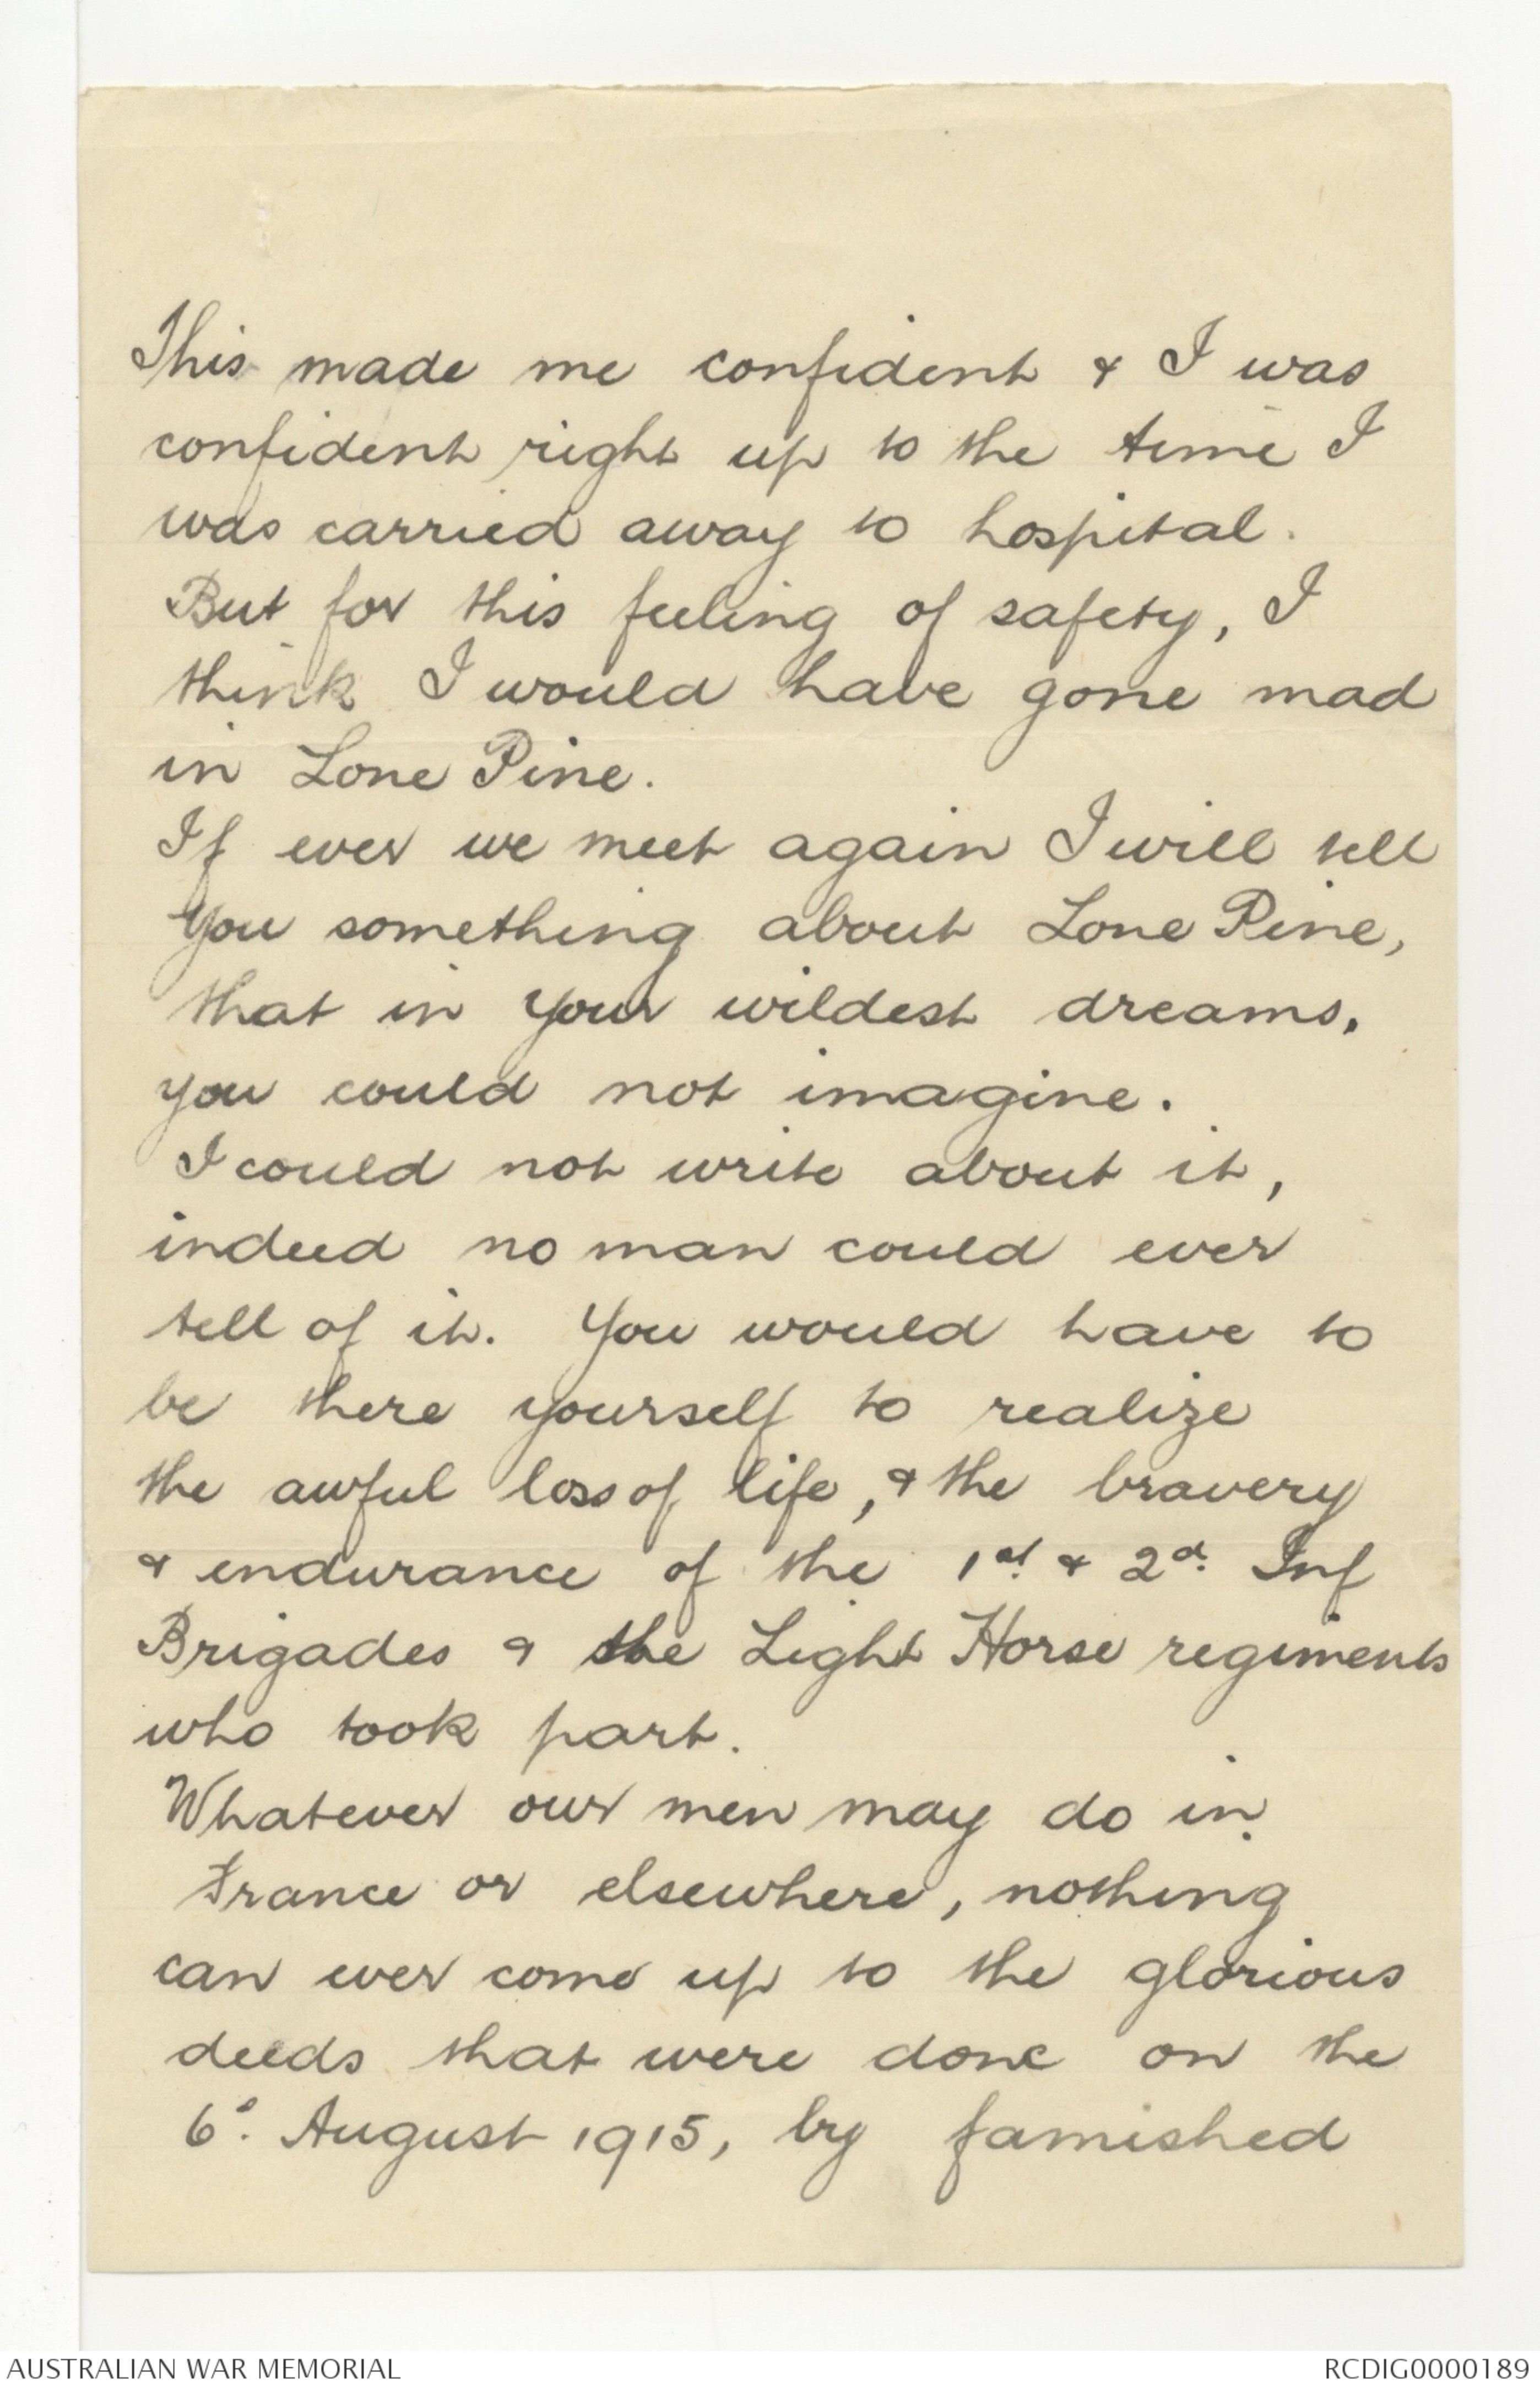 This made me confident & I was
confident right up to the time I
was carried away to hospital.
But for this feeling of safety, I
think I would have gone mad
in Lone Pine.
If ever we meet again I will tell
you something about Lone Pine,
that in your wildest dreams,
you could not imagine.
I could not write about it,
indeed no man could ever
tell of it. You would have to
be there yourself to realize
the awful loss of life, & the bravery
& endurance of the 1st. & 2d. Inf
Brigades & the Light Horse regiments
who took part.
Whatever our men may do in
France or elsewhere, nothing
can ever come up to the glorious
deeds that were done on the
6°. August 1915, by famished
AUSTRALIAN WAR MEMORIAL
RCDIG0000189